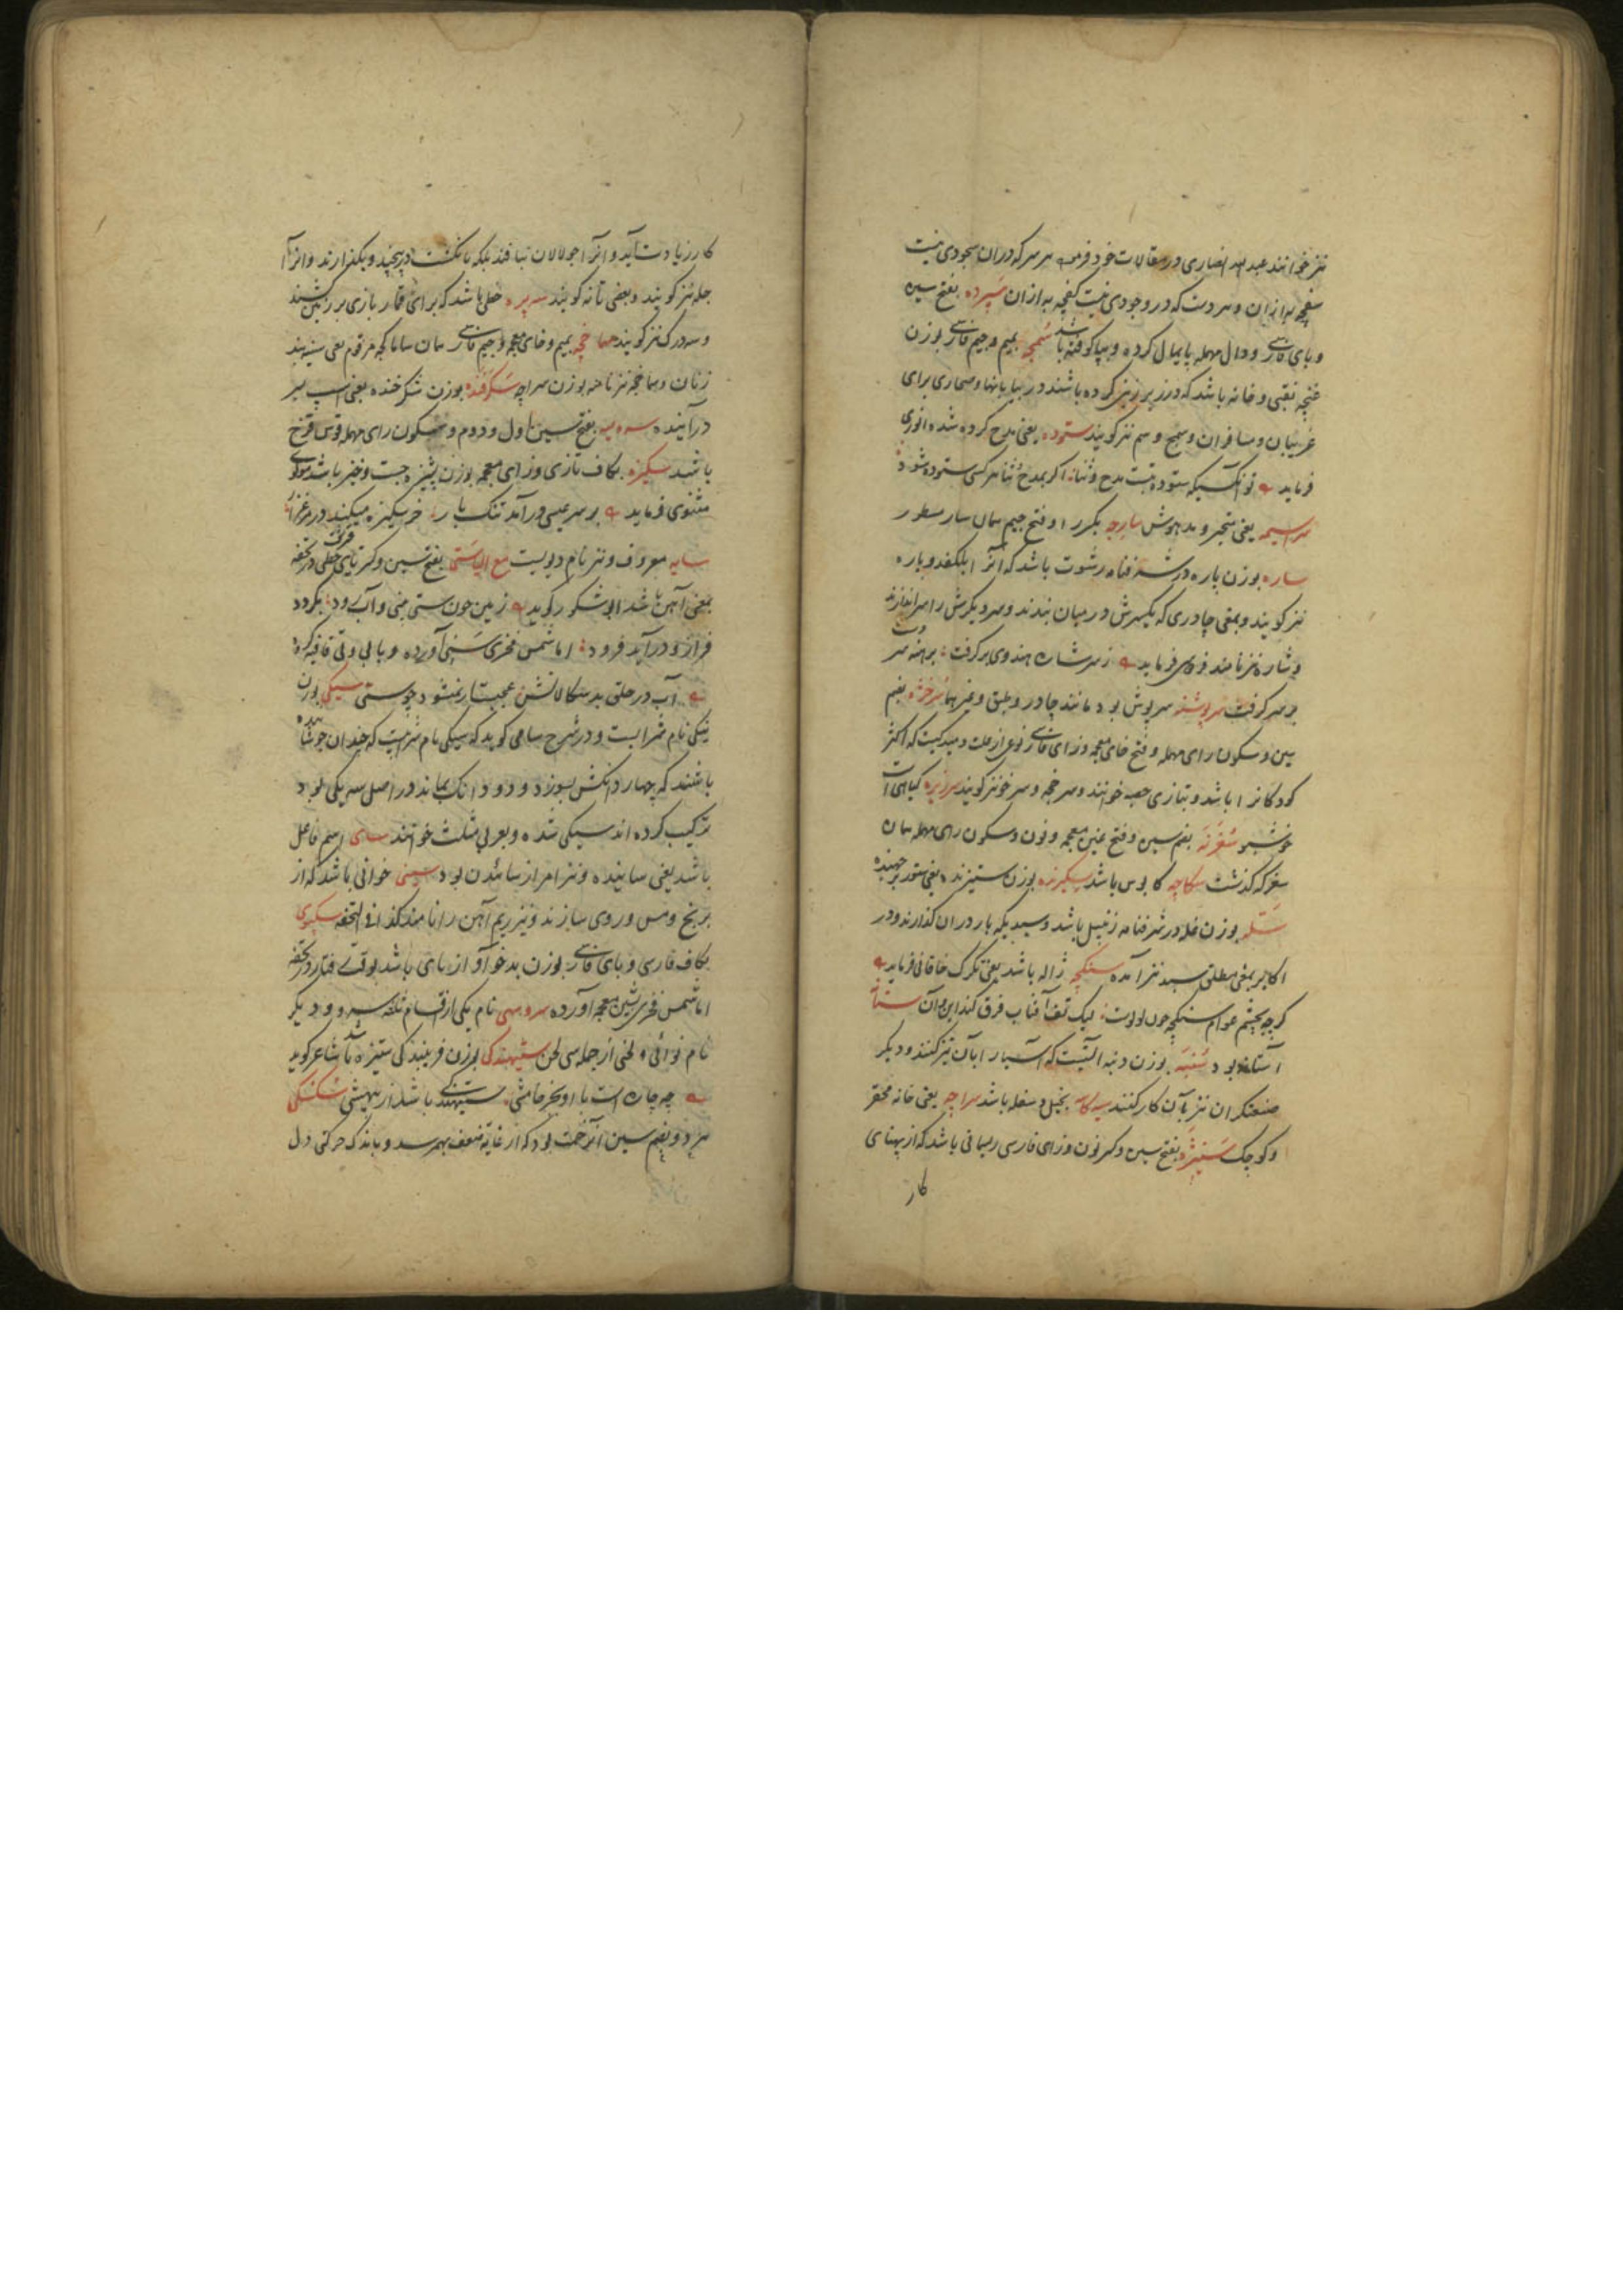 نیز خوانند عبد الله انصاری در مقالات خود فرموده هر سر که در ان سجودی نیست
سفچه به از ان و هر دست که در وجودی نیست کفچه به از ان سپرده بفتح سین
و بای فارسی و دال مهمله پایمال کرده و بپا کوفته باشد سمچه بمیم و جیم فارسی بوزن
غنچه نقبی و خانه باشد که در زیر زمین کرده باشند در بیابانها و صحاری برای
غریبان و مسافران و سمج و سم نیز گویند ستوده یعنی مدح کرده شده انوری
فرماید تو آنکسیکه ستوده تست مدح و ثنا اگر بمدح و ثنا هر کسی ستوده شود
سراسیمه یعنی متحیر و مدهوش سارجه بکسر را و فتح جیم همان سار مسطور
ساره بوزن پاره در شرفنامه رشوت باشد که آنرا بلکفد و پاره
نیز گویند و بمعنی چادری که یکسرش در میان بندند و سر دیگرش را بسر اندازند
و شاره نیز نامند فردوسی فرماید ز سر شاره هندوی بر گرفت برهنه سر دست
بر سر گرفت سرپوشنه سرپوش بود مانند چادر و طبق و غیرهما سرخژه بضم
سین و سکون رای مهمله و فتح خای معجمه و زای فارسی نوعی از علت دمیدگیست که اکثر
کودکانرا باشد و بتازی حصبه خوانند و سرخجه و سرخو نیز گویند سرزیره گیاهی است
خوشبو سغرنه بضم سین و فتح غین معجمه و نون و سکون رای مهمله همان
سغر که گذشت سکاچه کابوس باشد سکیزنده بوزن ستیزنده یعنی ستور برجهنده
سله بوزن غله در شرفنامه زنبیل باشد و سبدیکه بار در ان گذارند و در
اکابر بمعنی مطلق سبد نیز آمده سنگچه ژاله باشد یعنی تگرگ خاقانی فرماید
گرچه بچشم عوام سنگچه چون لولوست لیک تف آفتاب فرق کند این و آن ستانه
آستانه بود سنبه بوزن دنبه آلتیست که آسیا را بآن تیز کنند و دیگر
صنعتگران نیز بآن کار کنند سیه کاسه بخیل و سفله باشد سراچه یعنی خانه محقر
و کوچک سنیژه بفتح سین و کسر نون و زای فارسی ریسمانی باشد که از پهنای
کار
کار زیادت آید و آنرا جولاهان نبافند بلکه بانگشت در پیچند و بگذارند و انرا
جله نیز گویند و بعضی تانه گویند سه پره خطی باشد که برای قمار بازی بر زمین کشند
و سه درک نیز گویند سماخچه بمیم و خای معجمه و جیم فارسی همان ساماکچه مرقوم یعنی سینه بند
زنان و سماخجه نیز نامه بوزن سراچه سکرفنده بوزن شکرخنده یعنی اسپ بسر
درآینده سرویسه بفتح سین اول و دوم و سکون رای مهمله قوس قزح
باشد سکیزه بکاف تازی و زای معجمه بوزن پشیزه جست و خیز باشد مولوی
مثنوی فرماید بر سر عیسی درآمد تنگ بار خر سکیزه میکند در مرغزار
سایه معروف و نیز نام دیویست مع الیا ستی بفتح سین و کسر تای قرشت خطی در تحفه
بمعنی آهن باشد ابو شکور گوید زمین چون ستی بینی و آب رود بگردد
فراز و درآید فرود اما شمس فخری سنی آورده و با بی و نی قافیه کرده
آب در حلق بد سکالانش عجبست ار نمیشود چو ستی سیکی بوزن
نیکی نام شرابست و در شرح سامی گوید که سیکی نام شرابیست که چندان جوشانیده
باشند که چهار دانکش بسوزد و دو دانگ بماند در اصل سه یکی بود
ترکیب کرده اند سیکی شده و بعربی مثلث خوانند سای اسم فاعل
باشد یعنی ساینده و نیز امر از سائیدن بود سینی خوانی باشد که از
برنج و مس و روی سازند و نیز ریم آهن را نامند کذا فی التحفه سگپوی
بکاف فارسی و بای فارسی بوزن بدخو آواز پای باشد بوقت رفتار در تحفه
اما شمس فخری بشین معجمه آورده سروسهی نام یکی از اقسام ثلثه سرو و دیگر
نام نوائی و لحنی از جمله سی لحن ستیهندگی بوزن فریبندگی ستیزه باشد شاعر گوید
چه چاره است با او بجز خامشی ستیهندگی باشد از بیهشی سکسکی
هر دو بضم سین آنزحمت بود که از غایه ضعف بهم رسد و باندک حرکتی دل